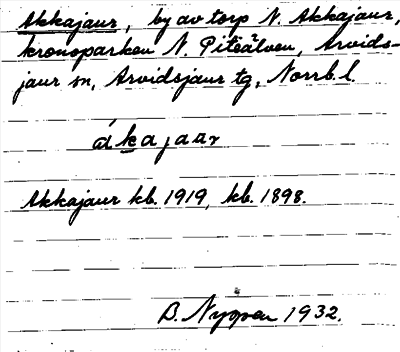 Akkajaur, by av torp N. Akkajaur,
kronoparken N. Piteälven, Arvids-
jaur sn, Arvidsjaur tg, Norrb. l.
ákajaur
Akkajaur kb. 1919, kb. 1898.
B. 1932.